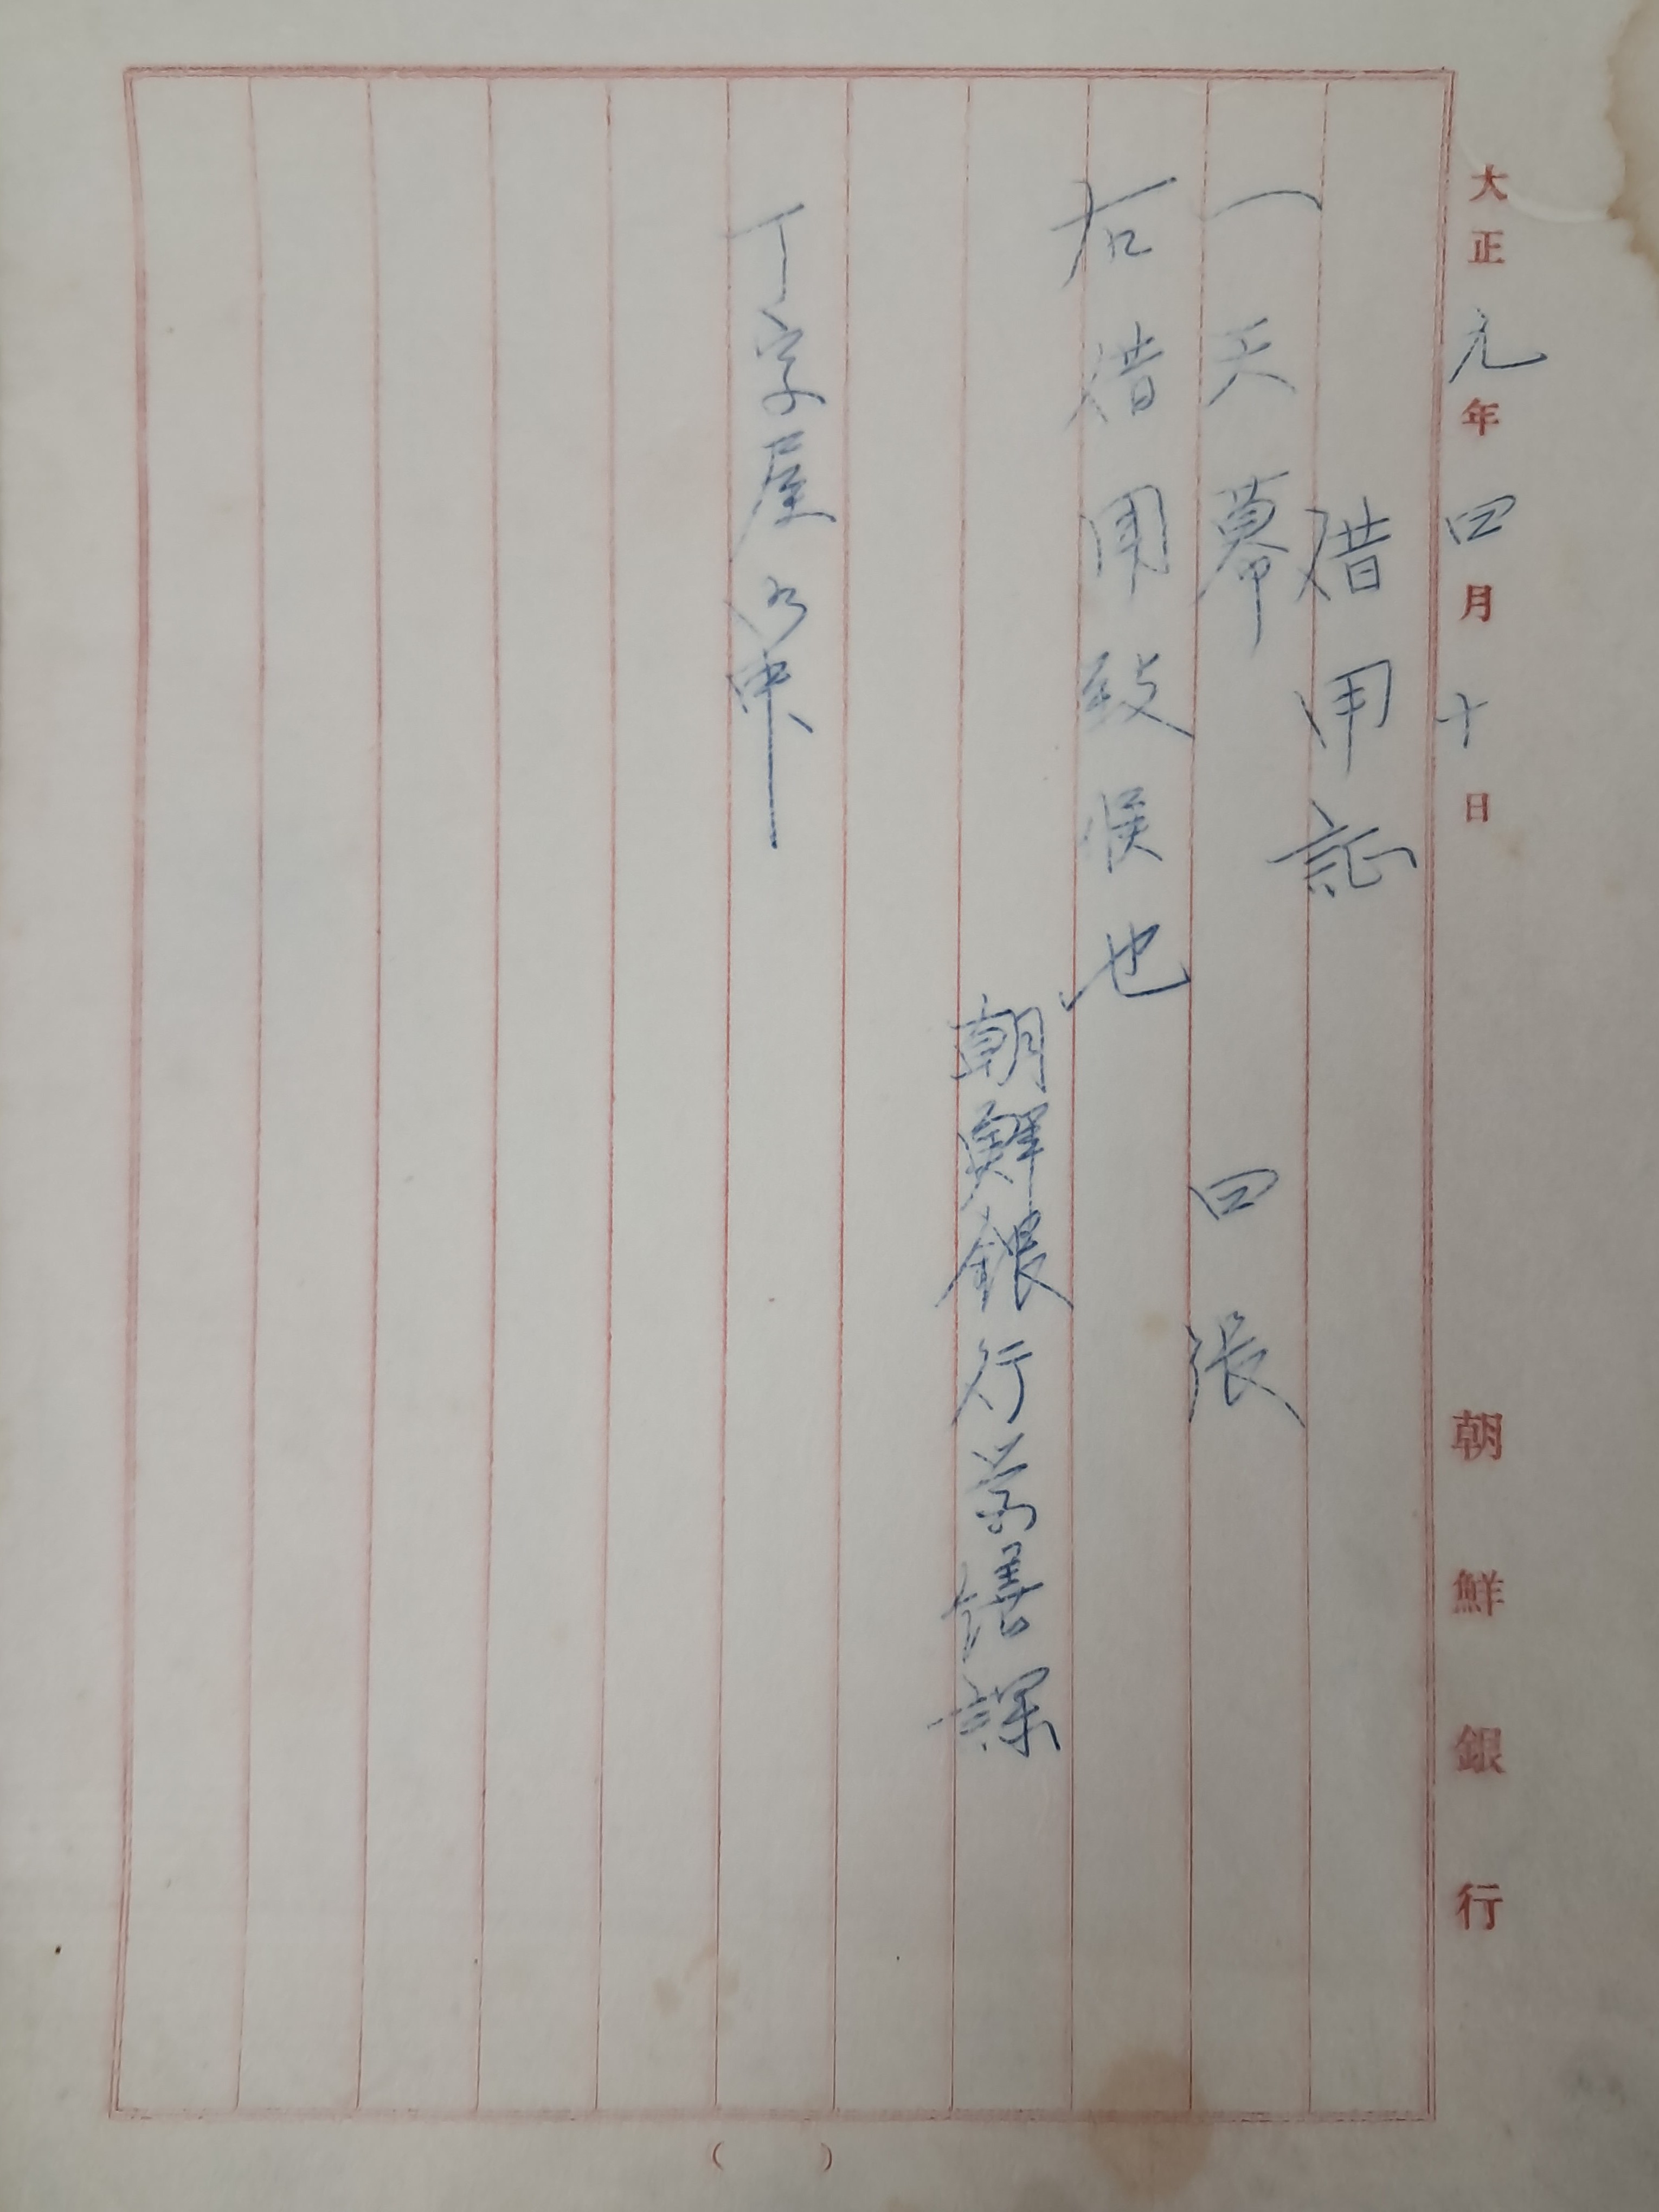 大正元年四月十日 朝鮮銀行
借用証
一天幕 四張
右借用致候也
朝鮮銀行営繕課
丁字屋御中